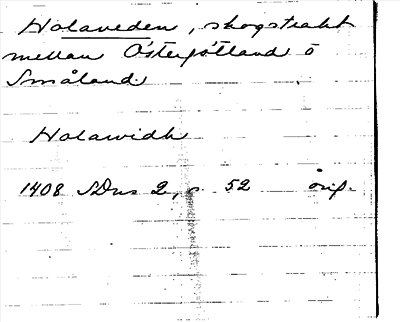 Holaveden, skogstrakt
mellan Östergötland o
Småland.
Holawidh
1408 SDns 2, s. 52 orig.